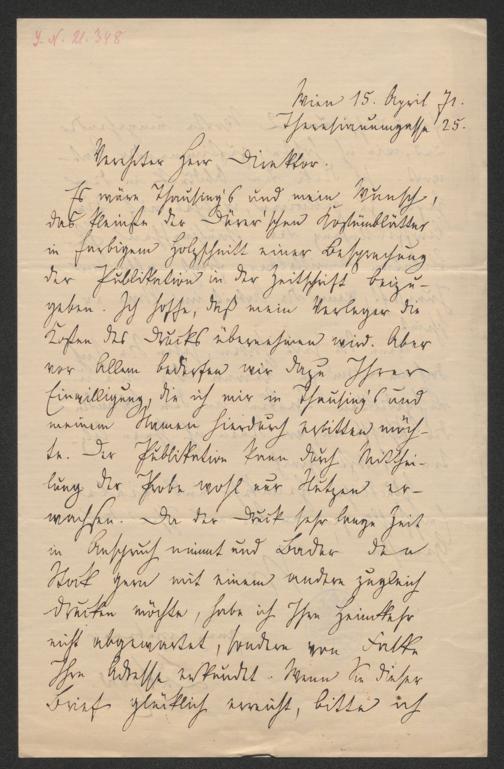 J. N. 21.348
Wien 15. April 71.
Theresianumgasse 25.
Verehrter Herr Direktor.
Es wäre Thausing's und mein Wunsch,
das kleinste der Dürer'schen Kostümblätter
in farbigem Holzschnitt einer Besprechung
der Publikation in der Zeitschrift beizu-
geben. Ich hoffe, daß mein Verleger die
Kosten des Drucks übernehmen wird. Aber
vor Allem bedürfen wir dazu Ihrer
Einwilligung, die ich mir in Thausing's und
meinem Namen hierdurch erbitten möch-
te. Der Publikation kann durch Mitthei-
lung der Probe wohl nur Nutzen er-
wachsen. Da der Druck sehr lange Zeit
in Anspruch nimmt und Bader den
Stock gern mit einem andern zugleich
drucken möchte, habe ich Ihre Heimkehr
nicht abgewartet, sondern von Falke
Ihre Adresse erkundet. Wenn Sie dieser
Brief glücklich erreicht, bitte ich